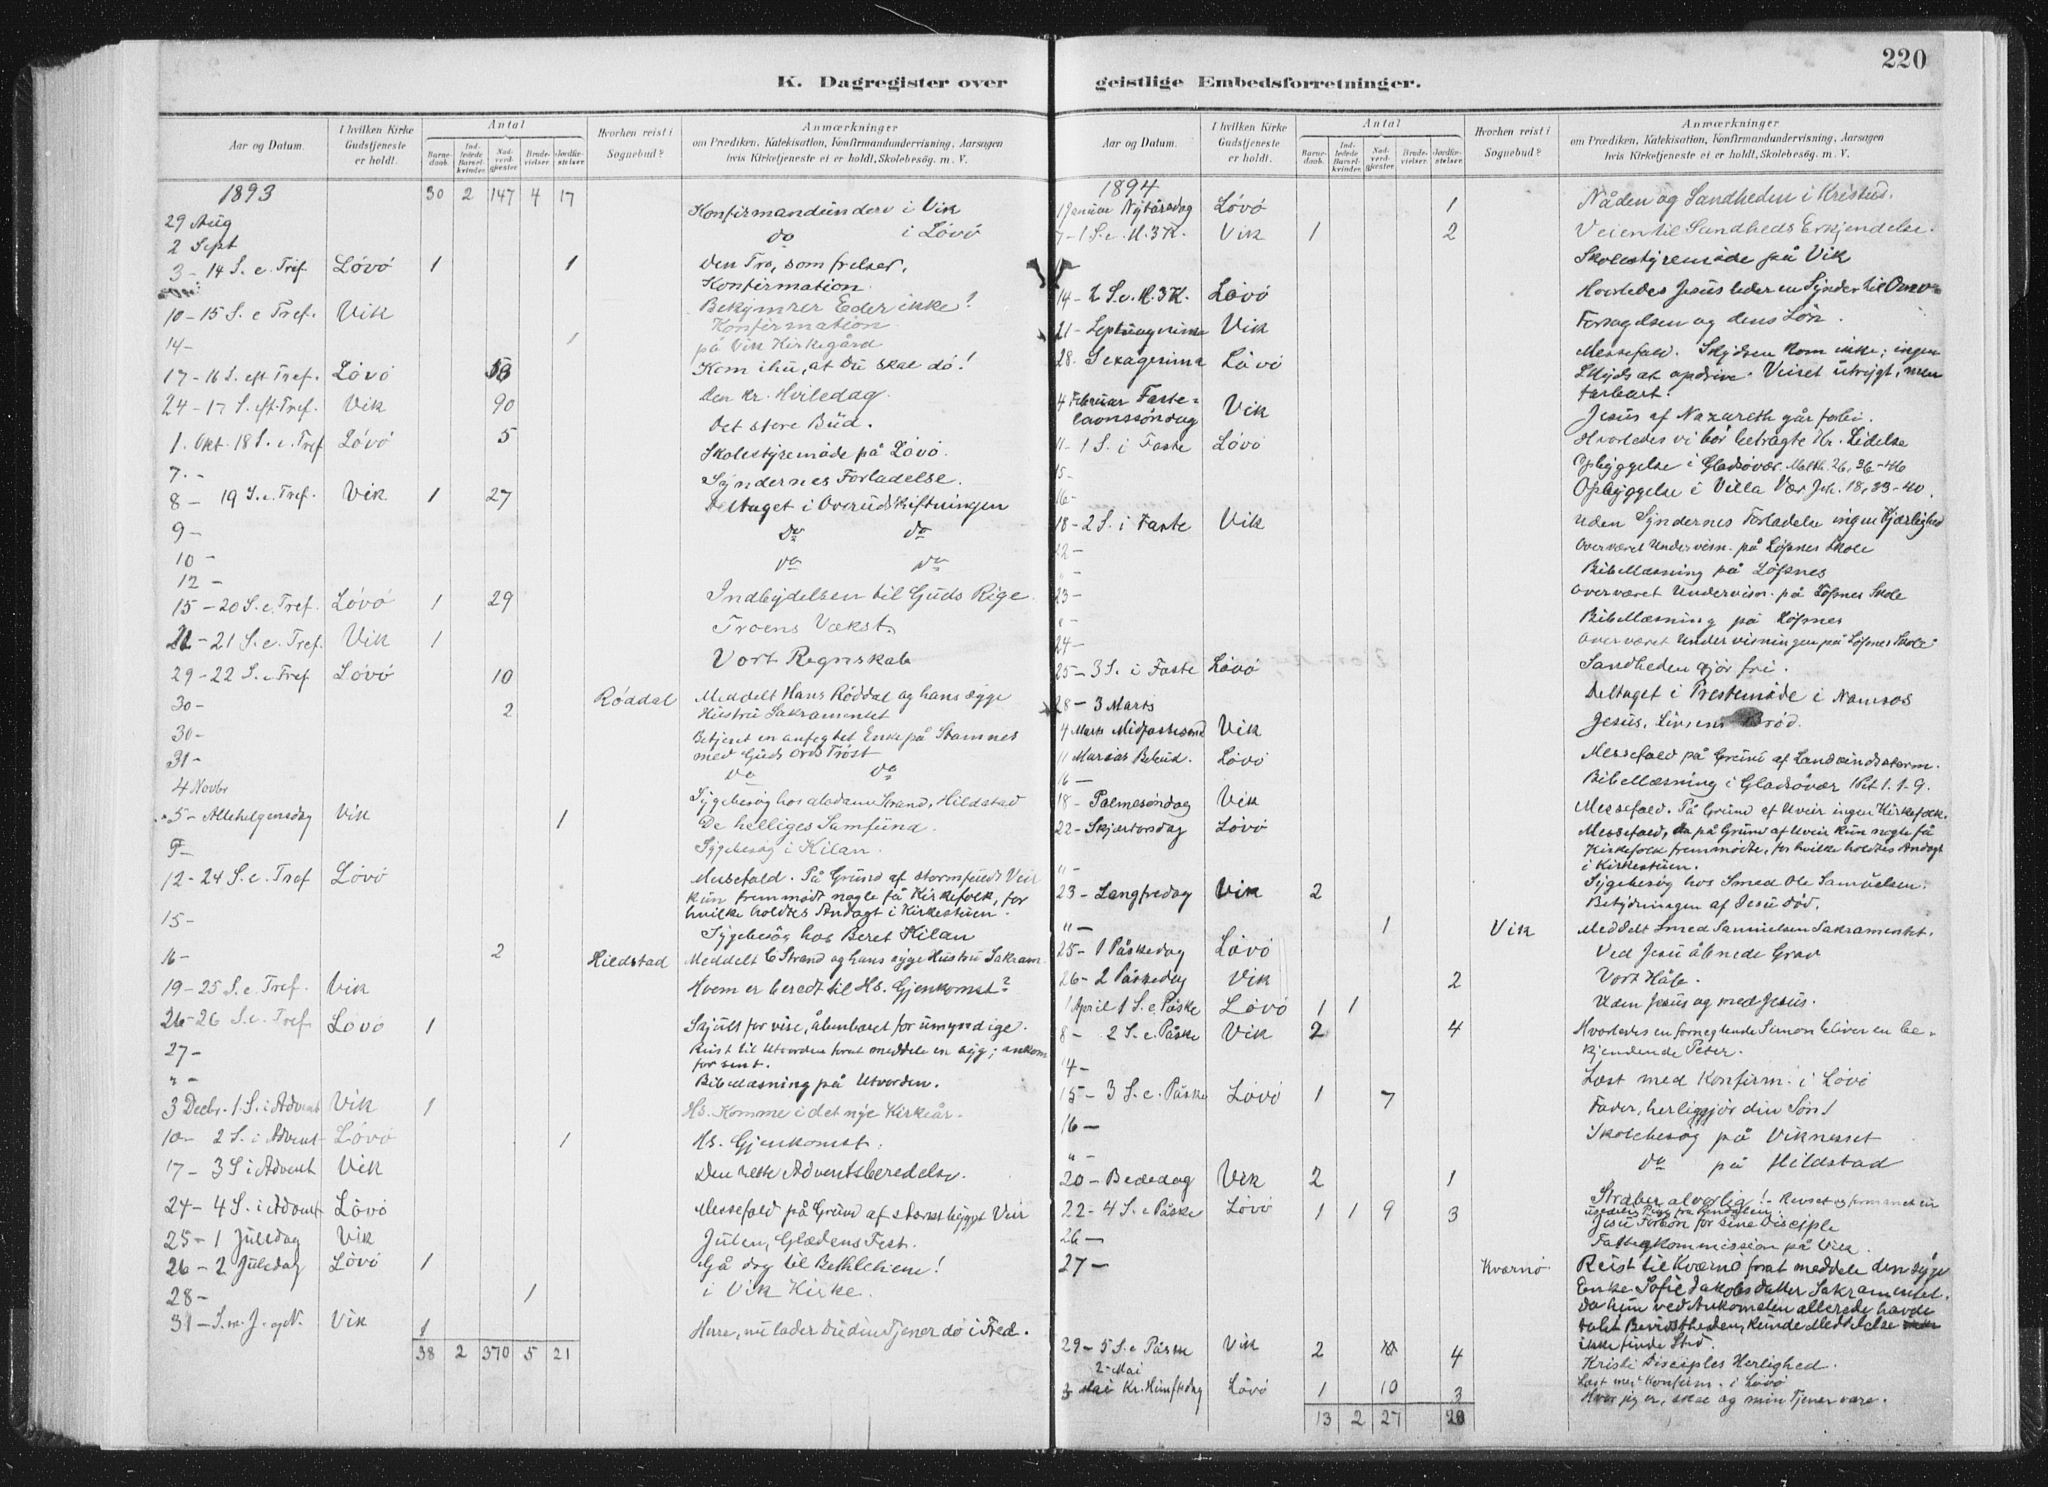 220
K. Dagregister over geistlige Embedsforretninger.
Aar og Datum.
I hvilken Kirke Gudstjeneste er holdt.
Antal
Barnedaab.
Indledede Barselkvinder.
Nadverdgjæster.
Brudevielser.
Jordfæstelser.
Hvorhen reist i Sognebud?
Anmærkninger
om Prædiken, Katekisation, Konfirmandundervisning, Aarsagen
hvis Kirketjeneste ei er holdt, Skolebesøg. m. V.
1893 30 2 147 4 17
29 Aug Konfirmandunderv i Vik
2 Sept do i Løvø
3 - 14 S. e. Tref. Løvø 1 1 Den Tro, som frelser.
Konfirmation.
10 - 15 S. e Tref. Vik Bekymrer Eder ikke!
Konfirmation
14 - 1 på Vik Kirkegård
17 - 16 S. eft Tref. Løvø 58 Kom ihu, at Du skal dø!
24 - 17 S. eft. Tref. Vik 90 Den kr. Hviledag.
1. Okt. 18 S. e. Tref Løvø 5 Det store Bud.
7. - Skolestyremøde på Løvø.
8 - 19 S. e. Tref. Vik 1 27 Syndernes Forladelse.
9 - Deltaget i Overudskiftningen
10 - Do do
12 - do do
15 - 20 S. e. Tref. Løvø 1 29 Indbydelsen til Guds Rige.
22 - 21 S. e. Tref. Vik 1 Troens Vækst.
29 - 22 S. e Tref Løvø 10 Vort Regnskab
30 - 2 Røddal Meddelt Hans Røddal og hans syge
Hustru Sakramentet
30 - Betjent en anfegtet Enke på Stamnes
med Guds Ords Trøst
31 - do do
4 Novbr Sygebesøg hos Madame Strand, Hildstad
5 - Allehelgensdag Vik 1 De helliges Samfund.
Sygebesøg i Kilan.
12 - 24 S. e. Tref Løvø Messefald. På Grund af stormfuldt Veir
kun fremmødt nogle få Kirkefolk, for
hvilke holdtes Andagt i Kirkestuen.
15 - Sygebesøg hos Beret Kilan
16 - 2 Hildstad Meddelt C Strand og hans syge Hustru Sakram.
19 - 25 S. e. Tref. Vik Hvem er beredt til Hs. Gjenkomst?
26 - 26 S. e. Tref Løvø 1 Skjult for vise, åbenbaret for umyndige.
27 - Reist til Utvorden forat meddele en syg; ankom
for sent.
" - Bibellæsning på Utvorden.
3 Decbr. 1 S. i Advent Vik 1 Hs. Komme i det nye Kirkeår.
10 - 2 S. i Advent Løvø 1 Hs. Gjenkomst.
17 - 3 S i Advent Vik Den rette Adventsberedelse.
24 - 4 S. i Advent Løvø Messefald på Grund af stormbygget Veir
25 - 1 Juledag Vik Julen, Glædens Fest.
26 - 2 Juledag Løvø 1 Gå dog til Bethlehem!
28 - 1 i Vik Kirke.
31 - S. m. J. og N. Vik 1 Herre, nu lader Du din Tjener dø i Fred.
38 2 370 5 21
Aar og Datum.
I hvilken Kirke Gudstjeneste er holdt.
Antal
Barnedaab.
Indledede Barselkvinder.
Nadverdgjæster.
Brudevielser.
Jordfæstelser.
Hvorhen reist i Sognebud?
Anmærkninger
om Prædiken, Katekisation, Konfirmandundervisning, Aarsagen
hvis Kirketjeneste ei er holdt, Skolebesøg. m. V.
1894
1 Januar Nytårsdag Løvø 1 Nåden og Sandheden i Kristus.
7 - 1 S. e. H. 3 K. Vik 1 2 Veien til Sandheds Erkjendelse.
Skolestyremøde på Vik
14 - 2 S. e. H. 3 K. Løvø Hvorledes Jesus leder en Synder til
21 - Septuagesima Vik Forsagelsen og dens Løn.
28. Sexagesima Løvø Messefald. Skydsen kom ikke; ingen
Skyds at opdrive. Veiset utrygt, men
farbart.
4 Februar Fastelavnssøndag Vik Jesus af Nazareth går forbi.
11 - 1 S. i Faste Løvø Hvorledes vi bør betragte Kr. Lidelse
15 - Opbyggelse i Gladsøvær. Matth. 26, 36-46
16 - Opbyggelse i Villa Vær Joh. 18, 33-40.
18 - 2 S. i Faste Vik Uden Syndernes Forladelse ingen Kjærlighed
22 - Overværet Undervisn. på Løfsnes Skole
" - Bibellæsning på Løfsnes
23 - Overværet Undervisn. på Løfsnes Skole
" - Bibellæsning på Løfsnes
24 - Overværet Undervisningen på Løfsnes Skole
25 - 3 S. i Faste Løvø Sandheden gjør fri.
28 - 3 Marts Deltaget i Prestemøde i Namsos
4 Marts Midfastesønd Vik Jesus, Livsens Brød.
11 Marias Bebud. Løvø Messefald på Grund af Landvindsstorm.
16 - Bibellæsning i Gladsøvær 1 Pet 1. 1-9.
18 - Palmesøndag Vik Messefald. På Grund af Uveir ingen Kirkefolk.
22 - Skjærtorsdag Løvø Messefald, da på Grund af Uveir kun nogle få
Kirkefolk fremmødte, for hvilke holdtes Andagt
i Kirkestuen.
" - Sygebesøg hos Smed Ole Samuelsen.
23 - Langfredag Vik 2 Betydningen af Jesu død.
" - 1 Vik Meddelt Smed Samuelsen Sakramentet.
25 - 1 Påskedag Løvø Ved Jesu åbnede Grav
26 - 2 Påskedag Vik 2 Vort Håb.
1 April 1 S. e. Påske Løvø 1 1 Uden Jesus og med Jesus.
8 - 2 S. e. Påske Vik 2 4 Hvorledes en fornegtende Simon bliver en be-
kjendende Peter.
14 - Læst med Konfirm. i Løvø
15 - 3 S. e. Påske Løvø 1 7 Fader, herliggjør din Søn!
16 - Skolebesøg på Viknesset
" - do på Hildstad
20 - Bededag Vik 2 1 Stræber alvorlig!
22 - 4 S. e Påske Løvø 1 1 9 3 Jesu Forbøn for sine Disciple
26 - Fattigkommission på Vik.
27 - Kværnø Reist til Kværnø forat meddele den syge
Enke Sofie Jakobsdatter Sakramentet.
Da hun ved Ankomsten allerede havde
tabt Bevidstheden, kunde Meddelelse
ikke finde Sted.
29 - 5 S. e Påske Vik 2 4 Kristi Disciples Herlighed.
2 Mai Læst med Konfirm. i Løvø
3 Mai Kr. Himfdag Løvø 1 10 3 Hvor jeg er, skal og min Tjener være.
13 2 27 20